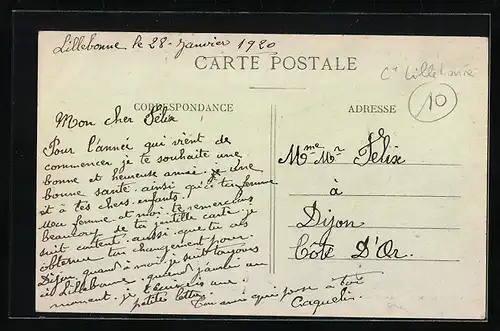 Lillebonne le 28 Janvier 1920
CARTE POSTALE
Cn Lillebonne
10
CORRESPONDANCE
ADRESSE
Mon cher Félix
Pour l'année qui vient de
commencer je te souhaite une
bonne et heureuse année. une
bonne santé. ainsi qu'a ta femme
et à tes chers enfants.
Ma femme et moi te remercions
beaucoup de ta jentille carte je
suit content. aussi. que tu as
obtenue ton changement pour
Dijon quand a moi. je suit toujours
a Lillebonne. quand j'aurai un
moment. je t'écrirais une
petite lettre.
Ton ami qui pense à toi
Caquelin.
Mme Mr Félix
à
Dijon
Côte D'Or.